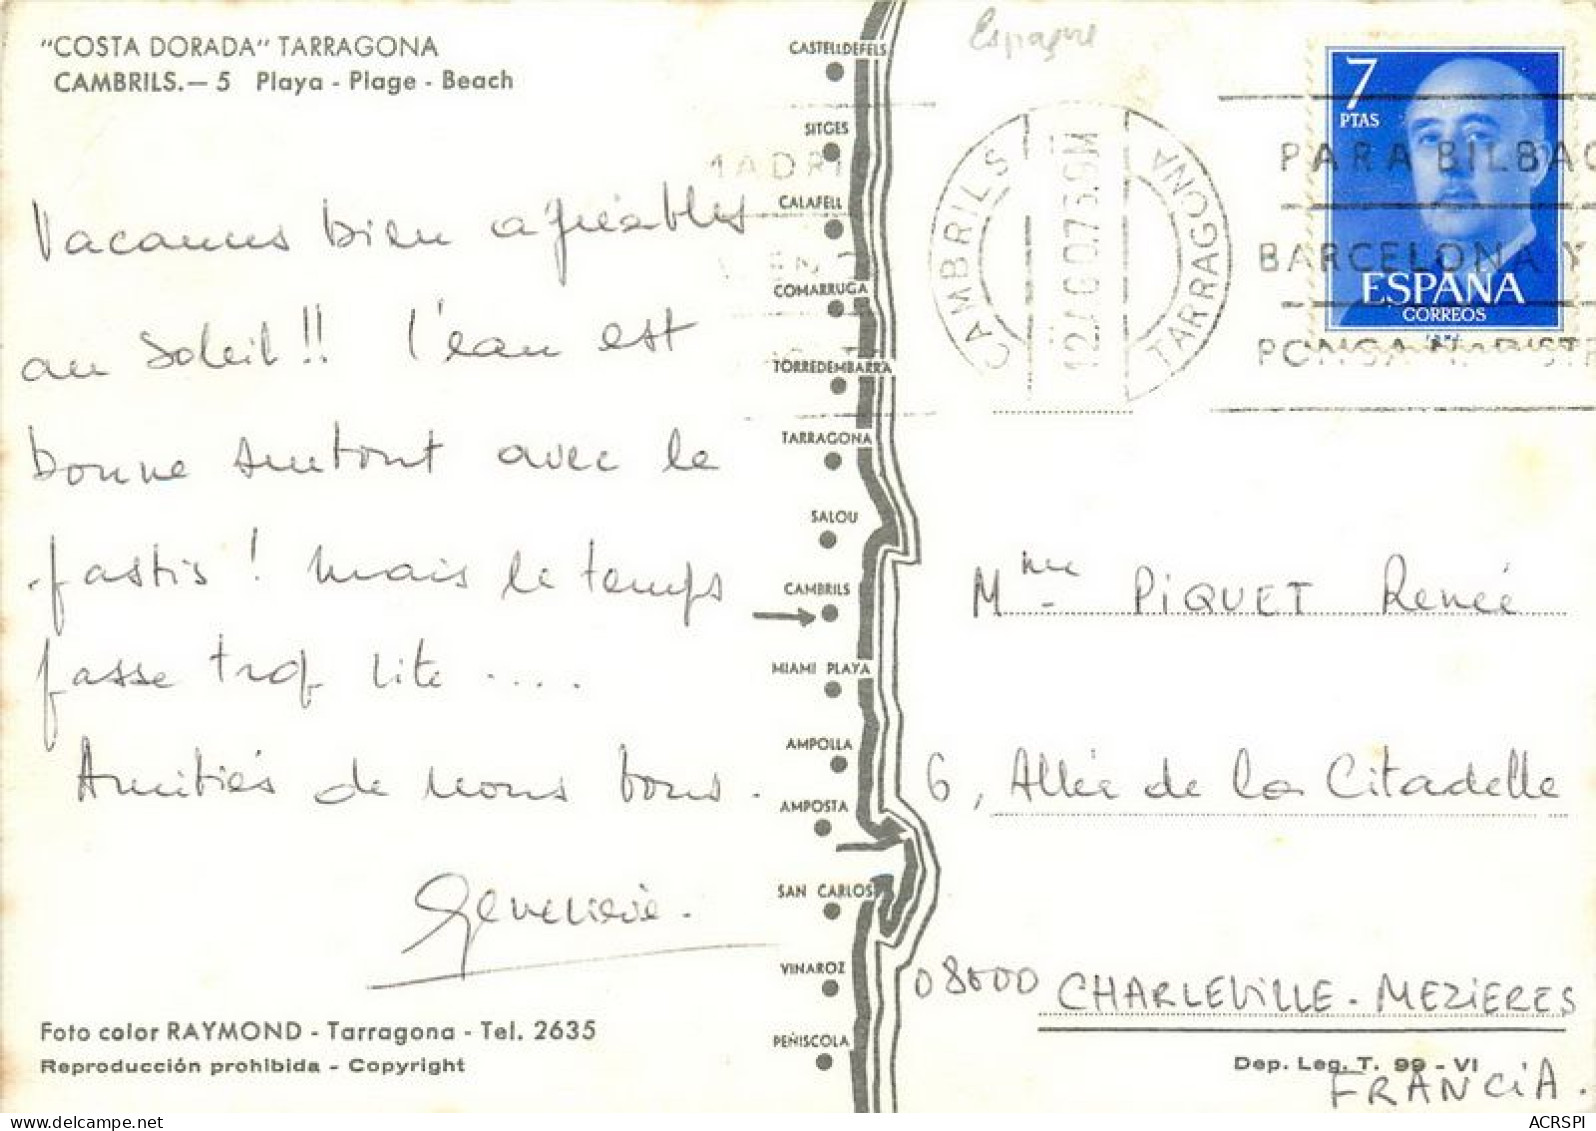 "COSTA DORADA" TARRAGONA
CAMBRILS.— 5 Playa - Plage - Beach
Vacances bien agréables
au soleil !! l'eau est
bonne surtout avec le
pastis ! mais le temps
passe trop vite ....
Amitiés de nous tous.
Geneviève.
Foto color RAYMOND - Tarragona - Tel. 2635
Reproducción prohibida - Copyright
CASTELLDEFELS
SITGES
CALAFELL
COMARRUGA
TORREDEMBARRA
TARRAGONA
SALOU
CAMBRILS
MIAMI PLAYA
AMPOLLA
AMPOSTA
SAN CARLOS
VINAROZ
PEÑISCOLA
Espagne
CAMBRILS
TARRAGONA
7
PTAS
ESPAÑA
CORREOS
PARA BILBAO
BARCELONA Y
PONGA
Mme PIQUET Renée
6, Allée de la Citadelle
08000 CHARLEVILLE-MEZIERES
Dep. Leg. T. 99 - VI
FRANCIA.
ACRSPI